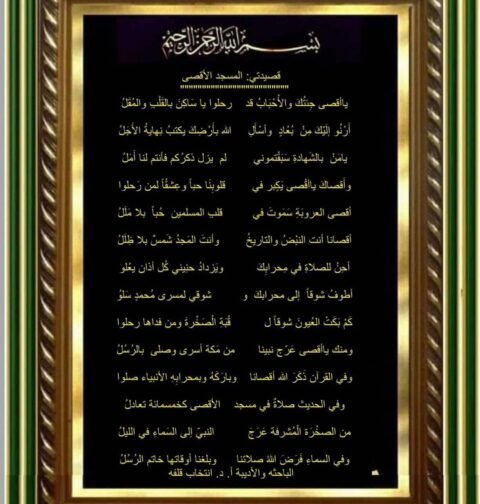 بسم الله الرحمن الرحيم
قصيدتي: المسجد الأقصى
ياأقصى جِئتُكَ والأحْبَابُ قد رحلوا يا سَاكِنَ بالقَلْبِ والمُقَلُ
أرْنُو إليْكَ مِنْ بُعَادٍ وأسْأل الله بأرْضِكَ يكتبُ نِهايةُ الأجَلْ
يامَنْ بالشَهادةِ سَبَقْتموني لم يزل ذكرُكم فأنتم لنا أمَلُ
وأقصاكَ ياأقْصى يَكِبر في قلوبِنَا حباً وعِشقاً لمن رَحلوا
أقصى العروبَةِ سَموتَ في قلب المسلمين حُباً بلا مَلَلُ
أقصانا أنت النبْضُ والتاريخُ وأنتَ المَجدُ شَمسٌ بلا ظِلَلُ
أحِنُ للصلاةِ في مِحرابِكَ ويَزدادُ حنيني كُل أذان يعْلو
أطوفُ شوقاً إلى محرابكَ و شوقي لمسرى مُحمدٍ سَلوُ
كَمْ بَكَتْ العُيونَ شوقاً ل قُبَةِ الصَخْرةَ ومن فداها رحلوا
ومنك ياأقصى عَرّج نبينا من مَكة أسرى وصلى بالرُسُلُ
وفي القرآن ذَكَرَ الله أقصانا وبارَكَهُ وبمحرابِهِ الأنبياء صلوا
وفي الحديث صلاةٌ في مسجد الأقصى كخمسمائة تعادلُ
من الصخْرَة المُشرفة عَرَجَ النبيّ إلى السَماءِ في الليلُ
وفي السماءِ فَرَضَ اللهُ صلاتنا وبلغنا أوقاتها خاتم الرُسُلُ
الباحثه والأديبة أ. د. انتخاب قلفه